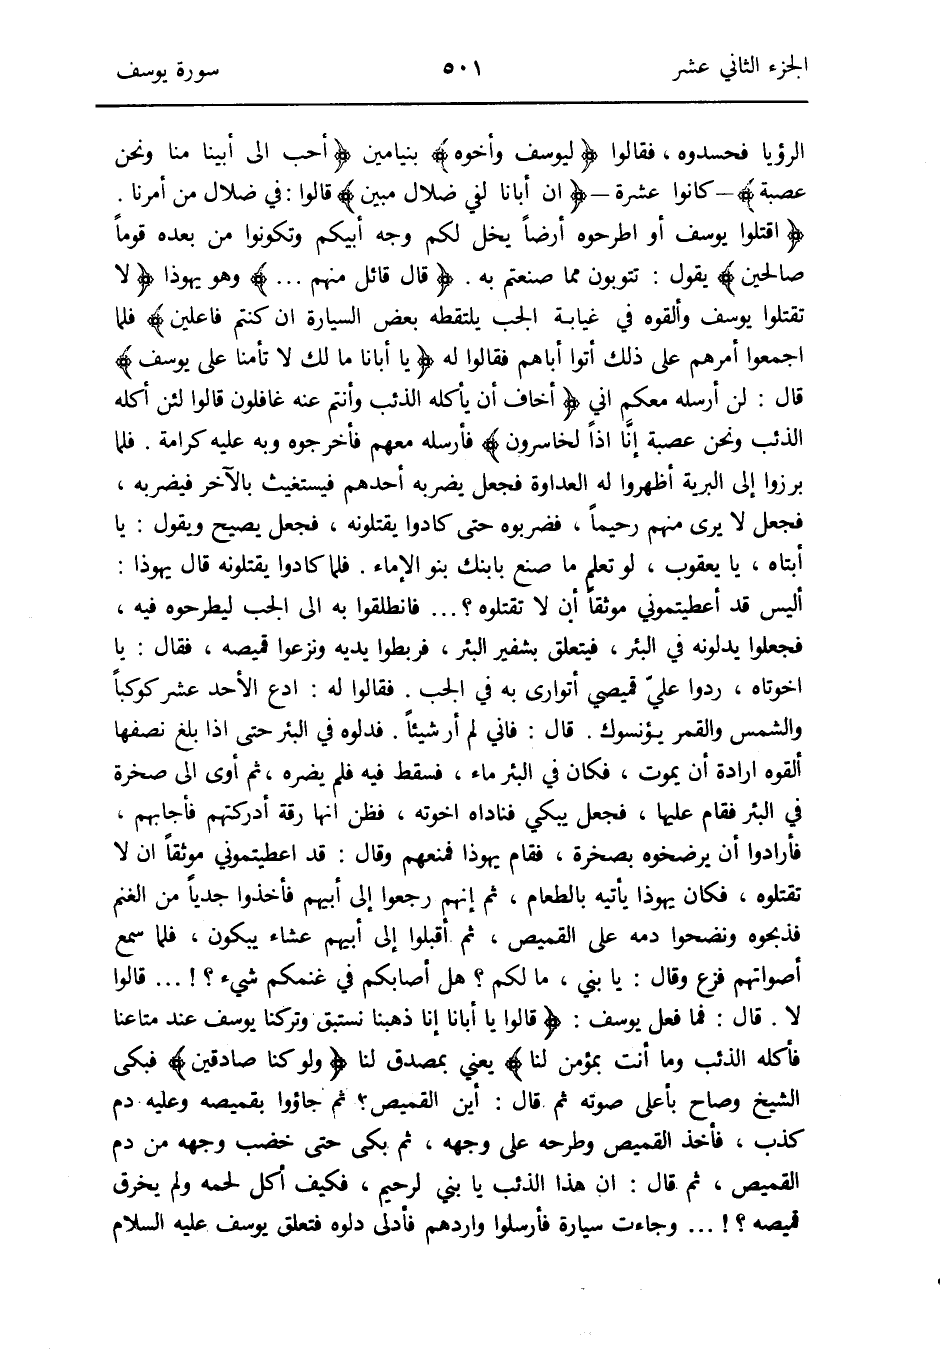 الجزء الثاني عشر ٥٠١ سورة يوسف
الرؤيا فحسدوه ، فقالوا ﴿ ليوسف وأخوه ﴾ بنيامين ﴿ أحب الى أبينا منا ونحن
عصبة ﴾ – كانوا عشرة – ﴿ ان أبانا لفي ضلال مبين ﴾ قالوا : في ضلال من أمرنا .
﴿ اقتلوا يوسف أو اطرحوه أرضاً يخل لكم وجه أبيكم وتكونوا من بعده قوماً
صالحين ﴾ يقول : تتوبون مما صنعتم به . ﴿ قال قائل منهم ... ﴾ وهو يهوذا ﴿ لا
تقتلوا يوسف وألقوه في غيابة الجب يلتقطه بعض السيارة ان كنتم فاعلين ﴾ فلما
اجمعوا أمرهم على ذلك أتوا أباهم فقالوا له ﴿ يا أبانا ما لك لا تأمنا على يوسف ﴾
قال : لن أرسله معكم اني ﴿ أخاف أن يأكله الذئب وأنتم عنه غافلون قالوا لئن أكله
الذئب ونحن عصبة إنَّا اذاً لخاسرون ﴾ فأرسله معهم فأخرجوه وبه عليه كرامة . فلما
برزوا إلى البرية أظهروا له العداوة فجعل يضربه أحدهم فيستغيث بالآخر فيضربه ،
فجعل لا يرى منهم رحيماً ، فضربوه حتى كادوا يقتلونه ، فجعل يصيح ويقول : يا
أبتاه ، يا يعقوب ، لو تعلم ما صنع بابنك بنو الإماء . فلما كادوا يقتلونه قال يهوذا :
أليس قد أعطيتموني موثقاً أن لا تقتلوه ؟ ... فانطلقوا به الى الجب ليطرحوه فيه ،
فجعلوا يدلونه في البئر ، فيتعلق بشفير البئر ، فربطوا يديه ونزعوا قميصه ، فقال : يا
اخوتاه ، ردوا عليّ قميصي أتوارى به في الجب . فقالوا له : ادع الأحد عشر كوكباً
والشمس والقمر يؤنسوك . قال : فاني لم أر شيئاً . فدلوه في البئر حتى اذا بلغ نصفها
ألقوه ارادة أن يموت ، فكان في البئر ماء ، فسقط فيه فلم يضره ، ثم أوى الى صخرة
في البئر فقام عليها ، فجعل يبكي فناداه اخوته ، فظن انها رقة أدركتهم فأجابهم ،
فأرادوا أن يرضخوه بصخرة ، فقام يهوذا فمنعهم وقال : قد اعطيتموني موثقاً ان لا
تقتلوه ، فكان يهوذا يأتيه بالطعام ، ثم إنهم رجعوا إلى أبيهم فأخذوا جدياً من الغنم
فذبحوه ونضحوا دمه على القميص ، ثم أقبلوا إلى أبيهم عشاء يبكون ، فلما سمع
أصواتهم فزع وقال : يا بني ، ما لكم ؟ هل أصابكم في غنمكم شيء ؟! ... قالوا
لا . قال : فما فعل يوسف : ﴿ قالوا يا أبانا إنا ذهبنا نستبق وتركنا يوسف عند متاعنا
فأكله الذئب وما أنت بمؤمن لنا ﴾ يعني بمصدق لنا ﴿ ولو كنا صادقين ﴾ فبكى
الشيخ وصاح بأعلى صوته ثم قال : أين القميص ؟ ثم جاؤوا بقميصه وعليه دم
كذب ، فأخذ القميص وطرحه على وجهه ، ثم بكى حتى خضب وجهه من دم
القميص ، ثم قال : ان هذا الذئب يا بني لرحيم ، فكيف أكل لحمه ولم يخرق
قميصه ؟! ... وجاءت سيارة فأرسلوا واردهم فأدلى دلوه فتعلق يوسف عليه السلام